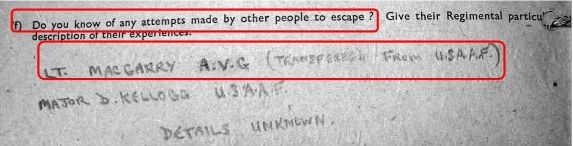 f) Do you know of any attempts made by other people to escape? Give their Regimental particu
description of their experiences.
LT. MACGARRY A.V.G (TRANSFERRED FROM U.S.A.A.F.)
MAJOR D. KELLOGG U.S.A.A.F.
DETAILS UNKNOWN.